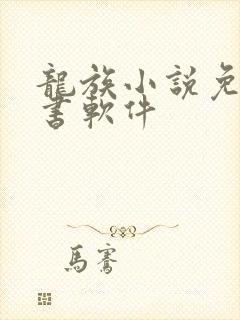 龍族小説免
書軟件
馬騫